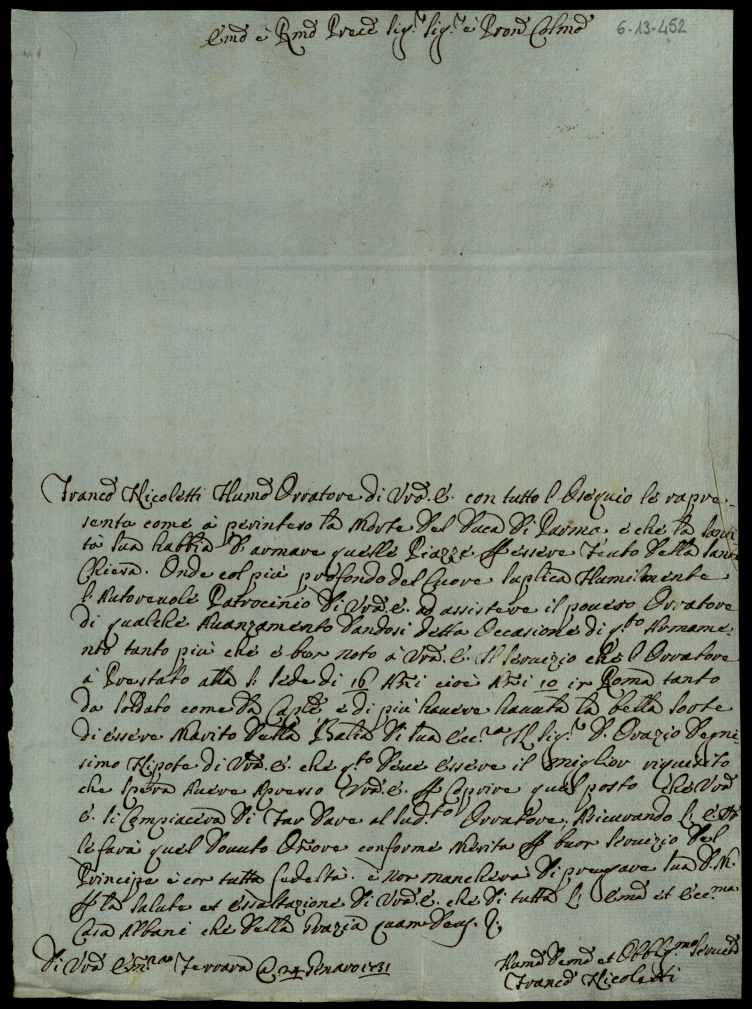 Emo è Rmo Prece Sigr Sigr è Pron Colmo
6-13-452
Franco Nicoletti Humo Orratore di Vra. E. con tutto l Osequio le rapre-
senta come à perinteso la Morte del Duca di Parma è che la Santi
tà Sua habbia d'armare quelle Piazze per essere feuto della Santa
Chiesa. Onde col più profondo del Cuore suplica Humilmente
l Autorevole Patrocinio di Vra. E. ad assistere il povero Orratore
di qualche Avanzamento dandosi detta Occasione di qto Armame-
nto tanto più che è ben noto à Vra. E. Il Servizio che l Orratore
à Prestato alla S: Sede di 16 Anni cioè Anni 10 in Roma tanto
da soldato come da Caple è di più havere havuta la bella sorte
di essere Marito della Balia di Sua Ecc.za Il Sigr D. Orazio Degni-
simo Nipote di Vra. E. che qto deve essere il miglior riquisito
che spera havere apresso Vra. E. per Coprire quel posto che Vra
E. si Compiacerà di far dare al sudto Orratore, Asicurando
le farà quel dovuto Onore conforme Merita per buon Servizio del
Principe è con tutta fedeltà. è non mancherà di pregare Sua D. M.
per la Salute et essaltazione di Vra. E. che di tutta Emà et Ecc.ma
Casa Albani che della Grazia quam Deus. &
Di Vra Em.za Ferrara @ 24 Genaro 1731
Humo Demo et Obblig.mo Servre
Franco Nicoletti